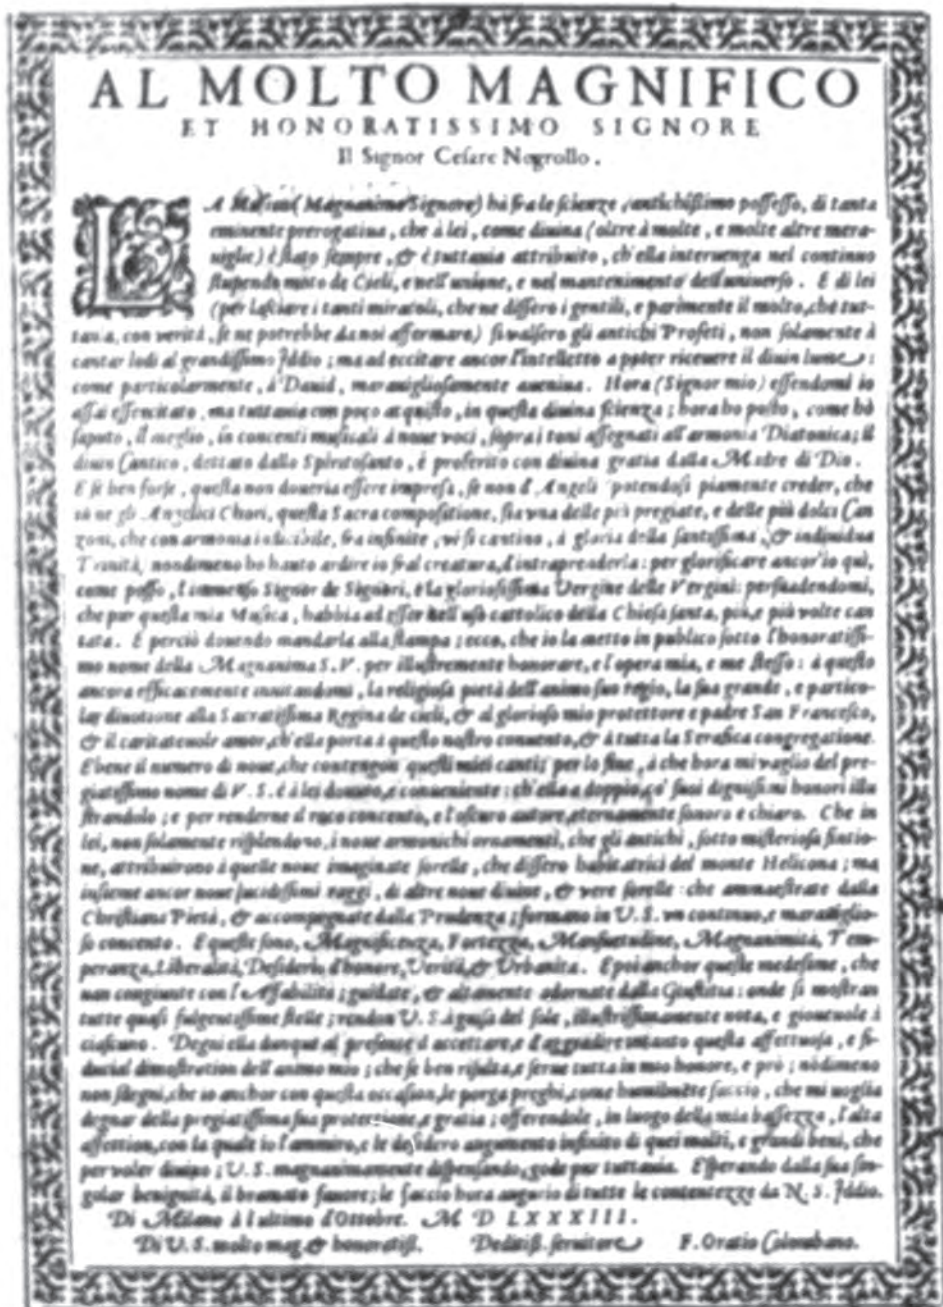 AL MOLTO MAGNIFICO
ET HONORATISSIMO SIGNORE
Il Signor Cesare Negrollo.
LA Musica (Magnanimo Signore) hà fra le scienze antichissimo possesso, di tanta
eminente prerogatiua, che à lei, come diuina (oltre à molte, e molte altre mera-
uiglie) è stato sempre, & è tuttauia attribuito, ch'ella interuenga nel continuo
stupendo moto de Cieli, e nell'unione, e nel mantenimento dell'uniuerso. E di lei
(per lasciare i tanti miracoli, che ne dissero i gentili, e parimente il molto, che tut-
tauia, con verità, se ne potrebbe da noi affermare) si valsero gli antichi Profeti, non solamente à
cantar lodi al grandissimo Iddio; ma ad eccitare ancor l'intelletto a poter riceuere il diuin lume:
come particolarmente, à Dauid, marauigliosamente auenina. Hora (Signor mio) essendomi io
assai essercitato, ma tuttauia con poco acquisto, in questa diuina scienza; hora ho posto, come hò
saputo, il meglio, in concenti musicali à noue voci, sopra i toni assegnati all'armonia Diatonica; il
diuin Cantico, dettato dallo Spiritosanto, è proferito con diuina gratia dalla Madre di Dio.
E se ben forse, questa non doueria essere impresa, se non d'Angeli potendosi piamente creder, che
sù ne gli Angelici Chori, questa Sacra compositione, sia vna delle più pregiate, e delle più dolci Can
zoni, che con armonia indicibile, fra infinite, vi si cantino, à gloria della santissima, & indiuidua
Trinità, nondimeno ho hauto ardire io fral creatura, d'intraprenderla: per glorificare ancor'io quì,
come posso, l'immenso Signor de Signori, e la gloriosissima Vergine delle Vergini: persuadendomi,
che pur questa mia Musica, habbia ad esser nell'uso cattolico della Chiesa santa, più, e più volte can
tata. E perciò douendo mandarla alla stampa; ecco, che io la metto in publico sotto l'honoratissi-
mo nome della Magnanima S. V. per illustremente honorare, e l'opera mia, e me stesso: à questo
ancora efficacemente inuitandomi, la religiosa pietà dell'animo suo regio, la sua grande, e partico-
lar diuotione alla Sacratissima Regina de cieli, & al glorioso mio protettore e padre San Francesco,
& il caritateuole amor, ch'ella porta à questo nostro conuento, & à tutta la Serafica congregatione.
E bene il numero di noue, che contengon questi miei canti; per lo fine, à che hora mi vaglio del pre-
giatissimo nome di V. S. è à lei douuto, e conueniente: ch'ella a doppio, co' suoi dignissimi honori illu
strandolo; e per renderne il roco concento, e l'oscuro autore, eternamente sonoro e chiaro. Che in
lei, non solamente risplendono, i noue armonichi ornamenti, che gli antichi, sotto misteriosa fintio-
ne, attribuirono à quelle noue imaginate sorelle, che dissero habitatrici del monte Helicona; ma
insieme ancor noue lucidissimi raggi, di altre noue diuine, & vere sorelle: che ammaestrate dalla
Christiana Pietà, & accompagnate dalla Prudenza; formano in V. S. vn continuo, e marauiglio-
so concento. E queste sono, Magnificenza, Fortezza, Mansuetudine, Magnanimità, Tem-
peranza, Liberalità, Desiderio d'honore, Verità, & Urbanità. E poi anchor queste medesime, che
uan congiunte con l'Affabilità; guidate, & altamente adornate dalla Giustitia: onde si mostran
tutte quasi fulgentissime stelle; rendon V. S. à guisa del sole, illustrissimamente nota, e gioueuole à
ciascuno. Degni ella dunque al presente d'accettare, e d'aggradire intanto questa affettuosa, e fi-
ducial dimostration dell'animo mio; che se ben risulta, e serue tutta in mio honore, e prò; nòdimeno
non sdegni, che io anchor con questa occasion, le porga preghi, come humilmēte faccio, che mi uoglia
degnar della pregiatissima sua protezione, e gratia; offerendole, in luogo della mia bassezza, l'alta
affettion, con la quale io l'ammiro, e le desidero augumento infinito di quei molti, e grandi beni, che
per voler diuino; V. S. magnanimamente dispensando, gode pur tuttauia. E sperando dalla sua sin-
golar benignità, il bramato fauore; le faccio hora augurio di tutte le contentezze da N. S. Iddio.
Di Milano à l'ultimo d'Ottobre. M D LXXXIII.
Di V. S. molto mag. & honoratiss. Deditiss. seruitore F. Oratio Colombano.